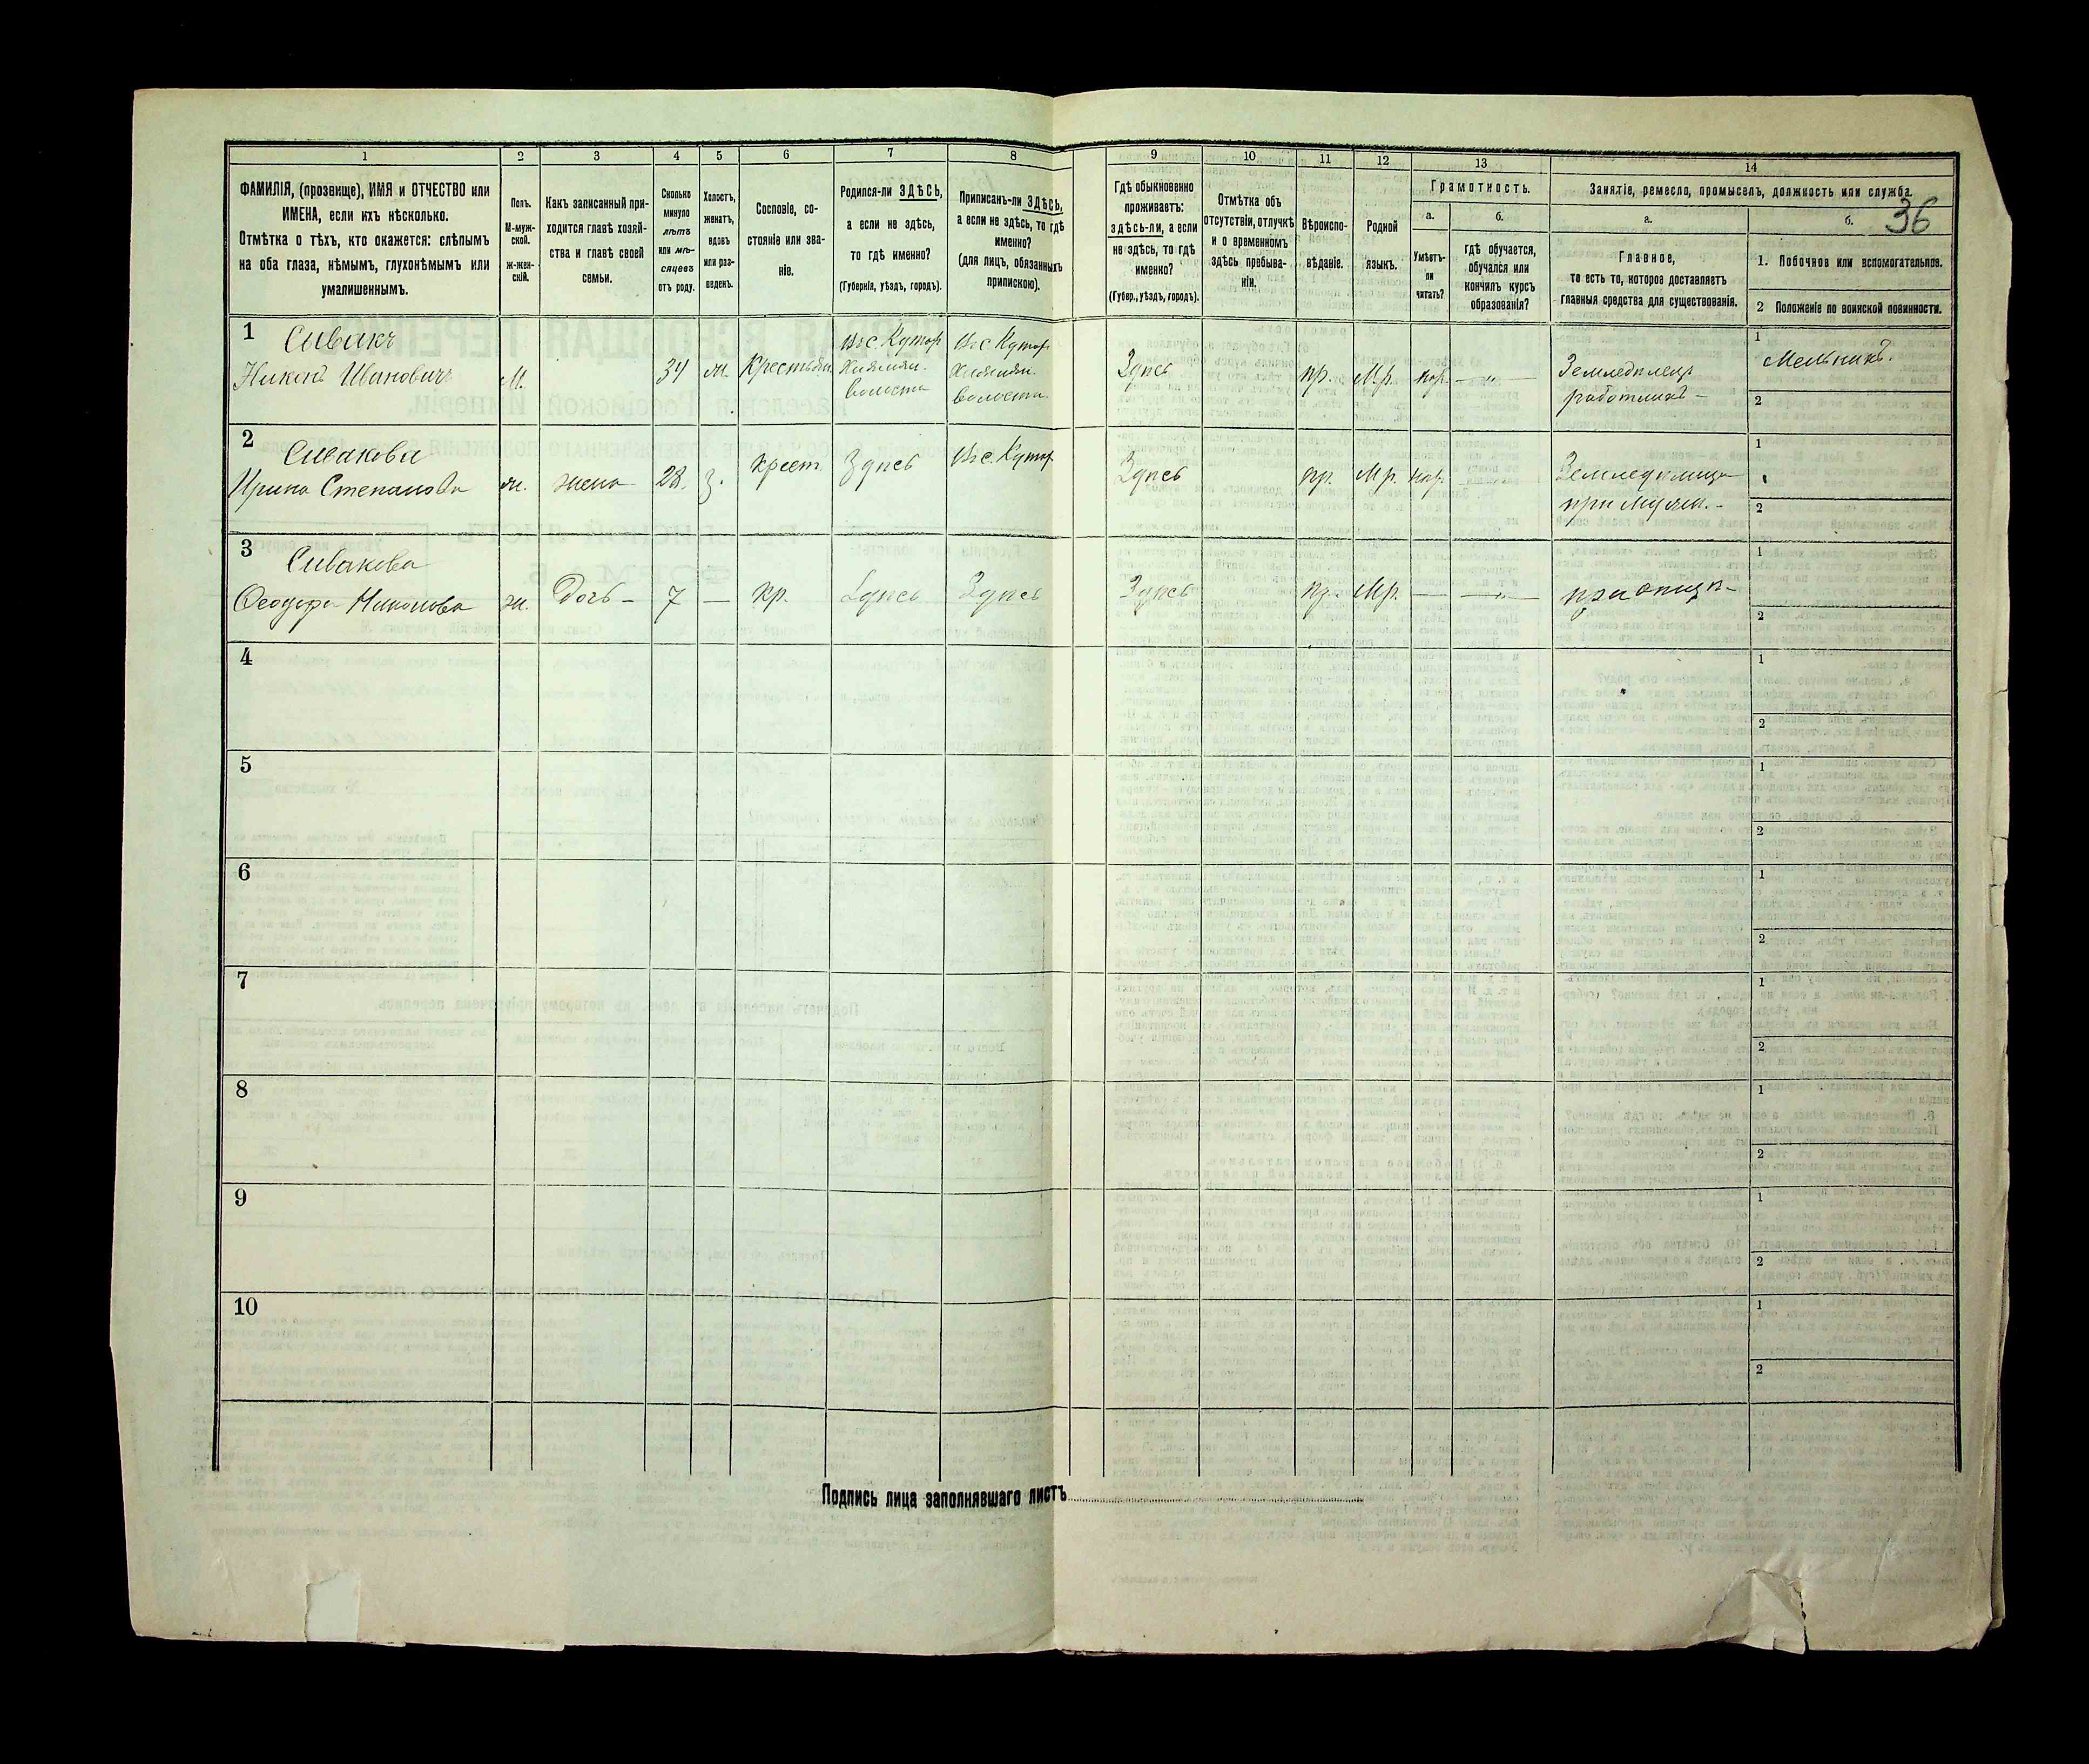 1 2 3 4 5 6 7 8 9 10 11 12 13 14
ФАМИЛІЯ, (прозвище), ИМЯ и ОТЧЕСТВО или
ИМЕНА, если ихъ нѣсколько.
Отмѣтка о тѣхъ, кто окажется: слѣпымъ
на оба глаза, нѣмымъ, глухонѣмымъ или
умалишеннымъ.
Полъ.
М-муж-
ской.
ж-жен-
скій.
Какъ записанный при-
ходится главѣ хозяй-
ства и главѣ своей
семьи.
Сколько
минуло
лѣтъ
или мѣ-
сяцевъ
отъ роду.
Холостъ,
женатъ,
вдовъ
или раз-
веденъ.
Сословіе, со-
стояніе или зва-
ніе.
Родился-ли ЗДѢСЬ,
а если не здѣсь,
то гдѣ именно?
(Губернія, уѣздъ, городъ).
Приписанъ-ли ЗДѢСЬ,
а если не здѣсь, то гдѣ
именно?
(для лицъ, обязанныхъ
припискою).
Гдѣ обыкновенно
проживаетъ:
здѣсь-ли, а если
не здѣсь, то гдѣ
именно?
(Губер., уѣздъ, городъ).
Отмѣтка объ
отсутствіи, отлучкѣ
и о временномъ
здѣсь пребыва-
ніи.
Вѣроиспо-
вѣданіе.
Родной
языкъ.
Грамотность.
а.
Умѣетъ-
ли
читать?
б.
гдѣ обучается,
обучался или
кончилъ курсъ
образованія?
Занятіе, ремесло, промыселъ, должность или служба.
36
а.
Главное,
то есть то, которое доставляетъ
главныя средства для существованія.
б.
1. Побочное или вспомогательное.
2 Положеніе по воинской повинности.
1 Сивакъ
Никонъ Ивановичъ М. 34 ж. Крестьян.
Въ с. Кутор
волости
Въ с. Кутор
волости.
Здѣсь пр. М.р.
Земледѣлец
работникъ
1 Мельникъ.
2
2 Сивакова
Ирина Степанова ж. жена 28. З. крест. Здѣсь Въ с. Кутор Здѣсь пр. М.р.
Земледѣлица
при мужѣ.
1
2
3 Сивакова
Ѳеодора Никонова ж. Дочь 7 — кр. Здѣсь Здѣсь Здѣсь пр. М.р. — при отцѣ
1
2
4 1
2
5 1
2
6 1
2
7 1
2
8 1
2
9 1
2
10 1
2
Подпись лица заполнявшаго листъ